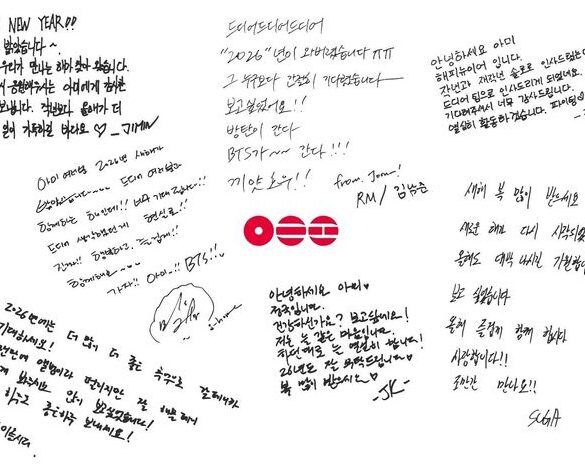 NEW YEAR!!
밝았습니다~
우리가 만나는 해가 찾아 왔습니다.
응원해주는 아미에게 감사한
보냅니다. 작년보다 올해가 더
일이 가득하길 바라요 ♡ _JIMIN
드디어드디어드디어
"2026"년이 와버렸습니다 ㅠㅠ
그 누구보다 간절히 기다렸습니다
보고싶었어요!!
방탄이 간다
BTS가~~ 간다!!!
끼얏호우!! from. Jom!
RM / 김남준
안녕하세요 아미
해피뉴이어 입니다.
작년과 재작년 솔로로 인사드리는
드디어 팀으로 인사드리게 되었네요.
기다려주셔서 너무 감사드립니다.
열심히 활동하겠습니다. 파이팅♡
아미 여러분 2026년 새해가
밝았습니다~~~ 드디어 여러분과
함께하는 해인데!! 너무 기대 됩니다!!
드디어 생각했던게 현실로!!
진짜!! 행복하고 즐겁게!!
함께해요~~~
가자!! 아미!! BTS!!
새해 복 많이 받으세요
새로운 해가 다시 시작되었
올해도 대박 나시길 기원합
보고 싶었습니다
올해 즐겁게 함께 합시다
사랑합니다!!
조만간 만나요!!
SUGA
안녕하세요 아미♡
정국입니다.
건강하신가요? 보고싶네요!
저는 늘 같은 마음입니다.
하던대로 늘 열심히 합니다.
26년도 잘 부탁드립니다♡
복 많이 받으시요♡
-JK-
2026년에는 더 많이 더 좋은
기대하세요!
보고싶었습니다!
보내세요!